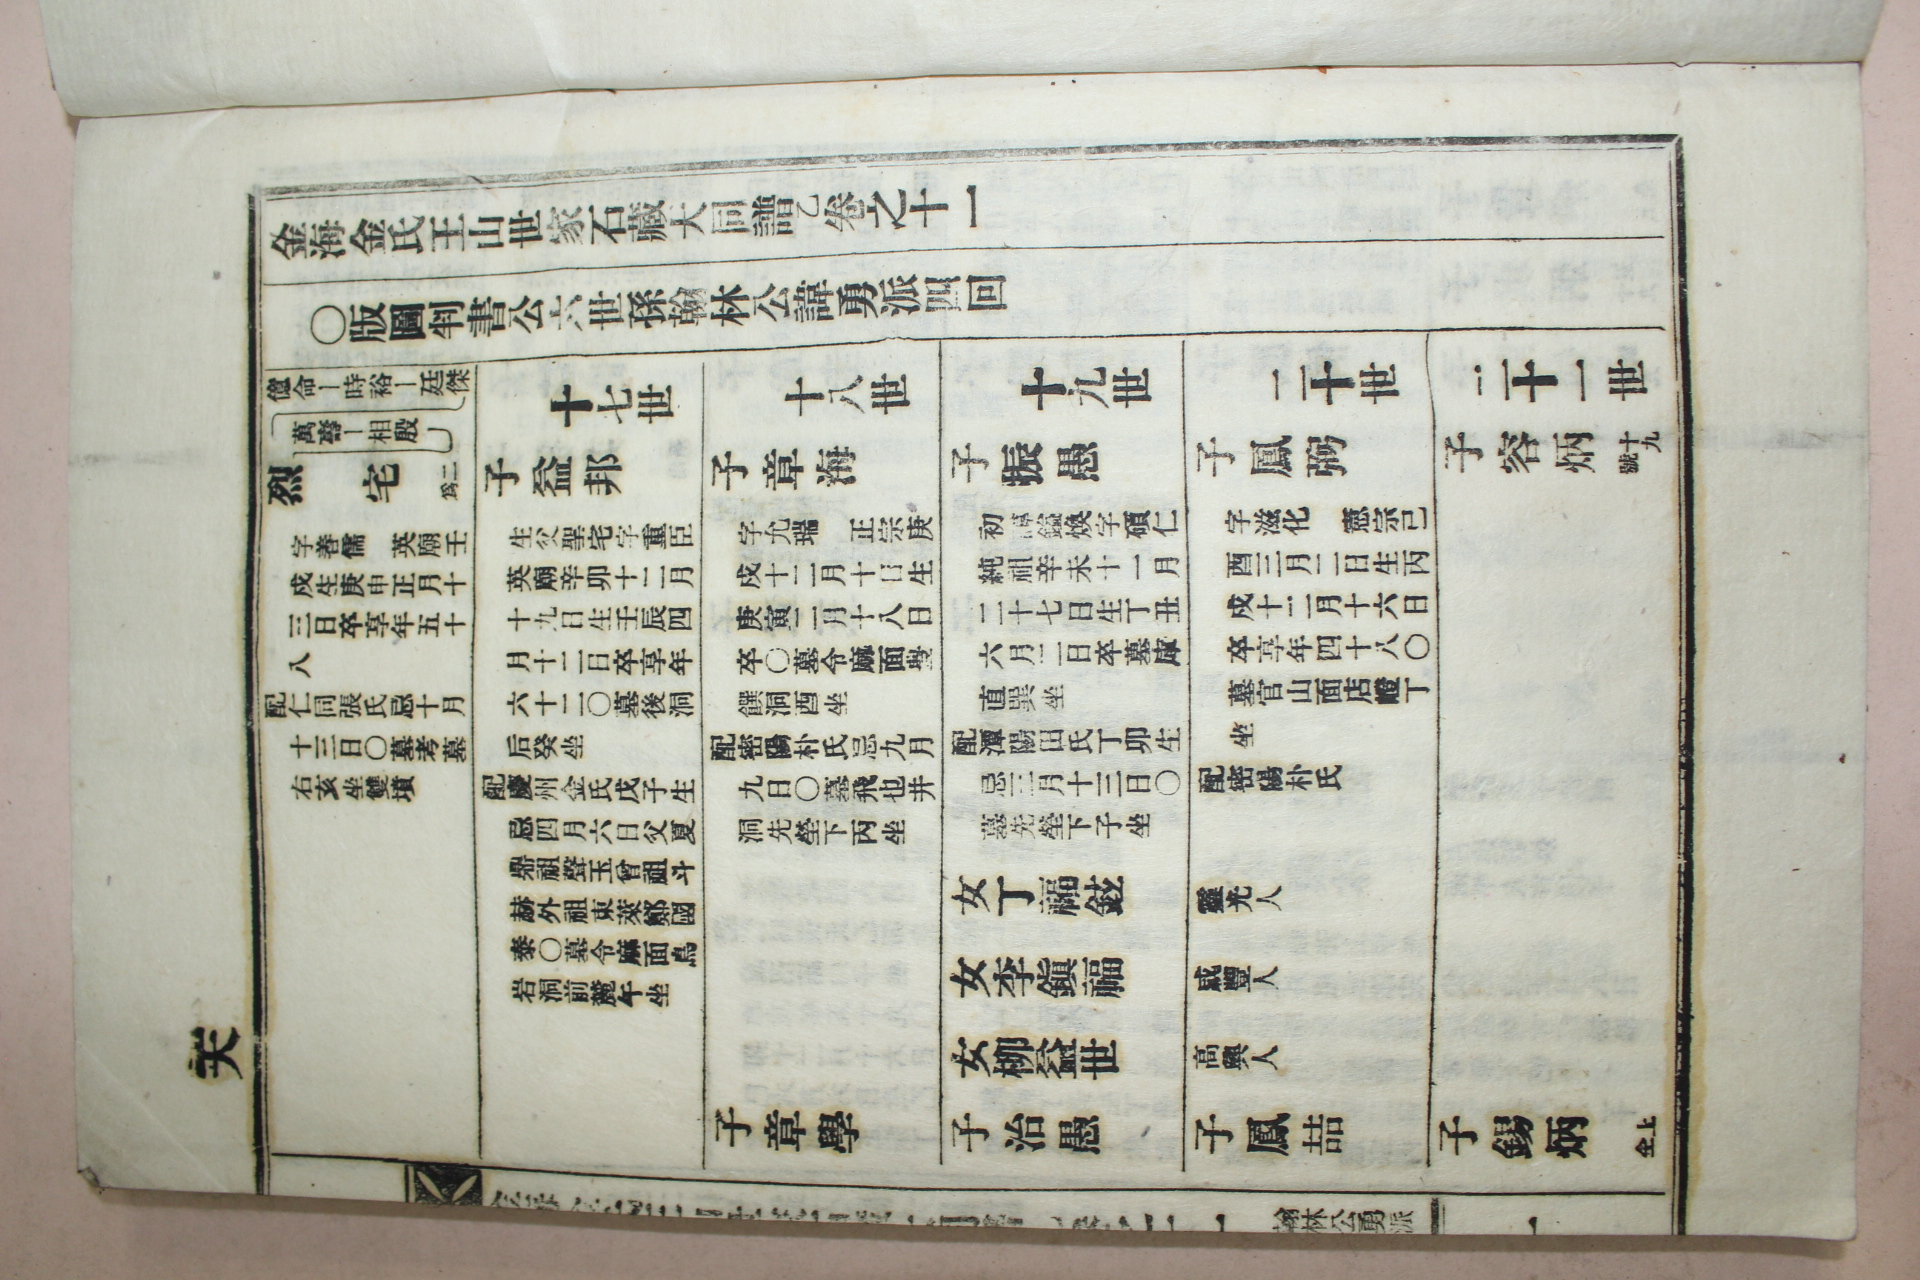 金海金氏王山世家石藏大同譜乙卷之十一
〇版圖判書公六世孫翰林公諱勇派四回
億命―時裕―廷傑
萬壽―相殷
烈宅 爲二
字善儒 英廟壬
戌生庚申正月十
三日卒享年五十
八
配仁同張氏忌十月
十三日〇墓考墓
右亥坐雙墳
十七世
子益邦
生父聖宅字重臣
英廟辛卯十二月
十九日生壬辰四
月十二日卒享年
六十二〇墓後洞
后癸坐
配慶州金氏戊子生
忌四月六日父夏
鼎祖聲玉曾祖斗
赫外祖東萊鄭國
泰〇墓令麻面鳥
岩洞前麓午坐
十八世
子章海
字允瑞 正宗庚
戌十二月十日生
庚寅二月十八日
卒〇墓令麻面
饌洞酉坐
配密陽朴氏忌九月
九日〇墓飛也井
洞先塋下丙坐
子章學
十九世
子振愚
初諱鎰煥字碩仁
純祖辛未十一月
二十七日生丁丑
六月二日卒墓庫
直巽坐
配潭陽田氏丁卯生
忌三月十三日〇
墓先塋下子坐
女丁福鉉
女李鎭福
女柳益世
子治愚
二十世
子鳳弼
字滋化 憲宗己
酉三月二日生丙
戌十二月十六日
卒享年四十八〇
墓官山面店嶝丁
坐
配密陽朴氏
靈光人
咸豐人
高興人
子鳳喆
二十一世
子容炳 十九號
子錫炳 仝上
天
翰林公勇派
一